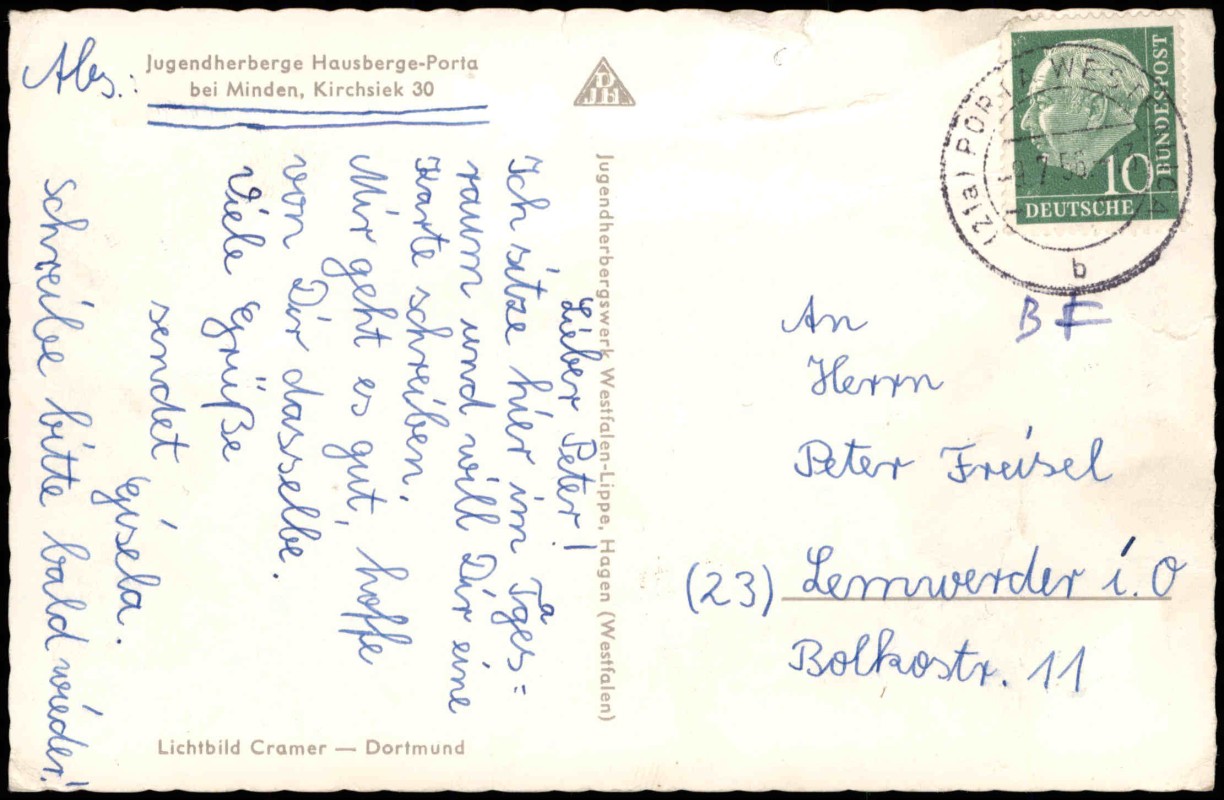 Abs.:
Jugendherberge Hausberge-Porta
bei Minden, Kirchsiek 30
DJH
Lieber Peter!
Ich sitze hier im Tages=
raum und will Dir eine
Karte schreiben.
Mir geht es gut, hoffe
von Dir dasselbe.
Viele Grüße
sendet
Gisela.
schreibe bitte bald wieder!
Jugendherbergswerk Westfalen-Lippe, Hagen (Westfalen)
Lichtbild Cramer — Dortmund
(21a) PORTA WESTFALICA
b
DEUTSCHE
BUNDESPOST
10
BF
An
Herrn
Peter Freisel
(23) Lemwerder i. O
Bolkostr. 11